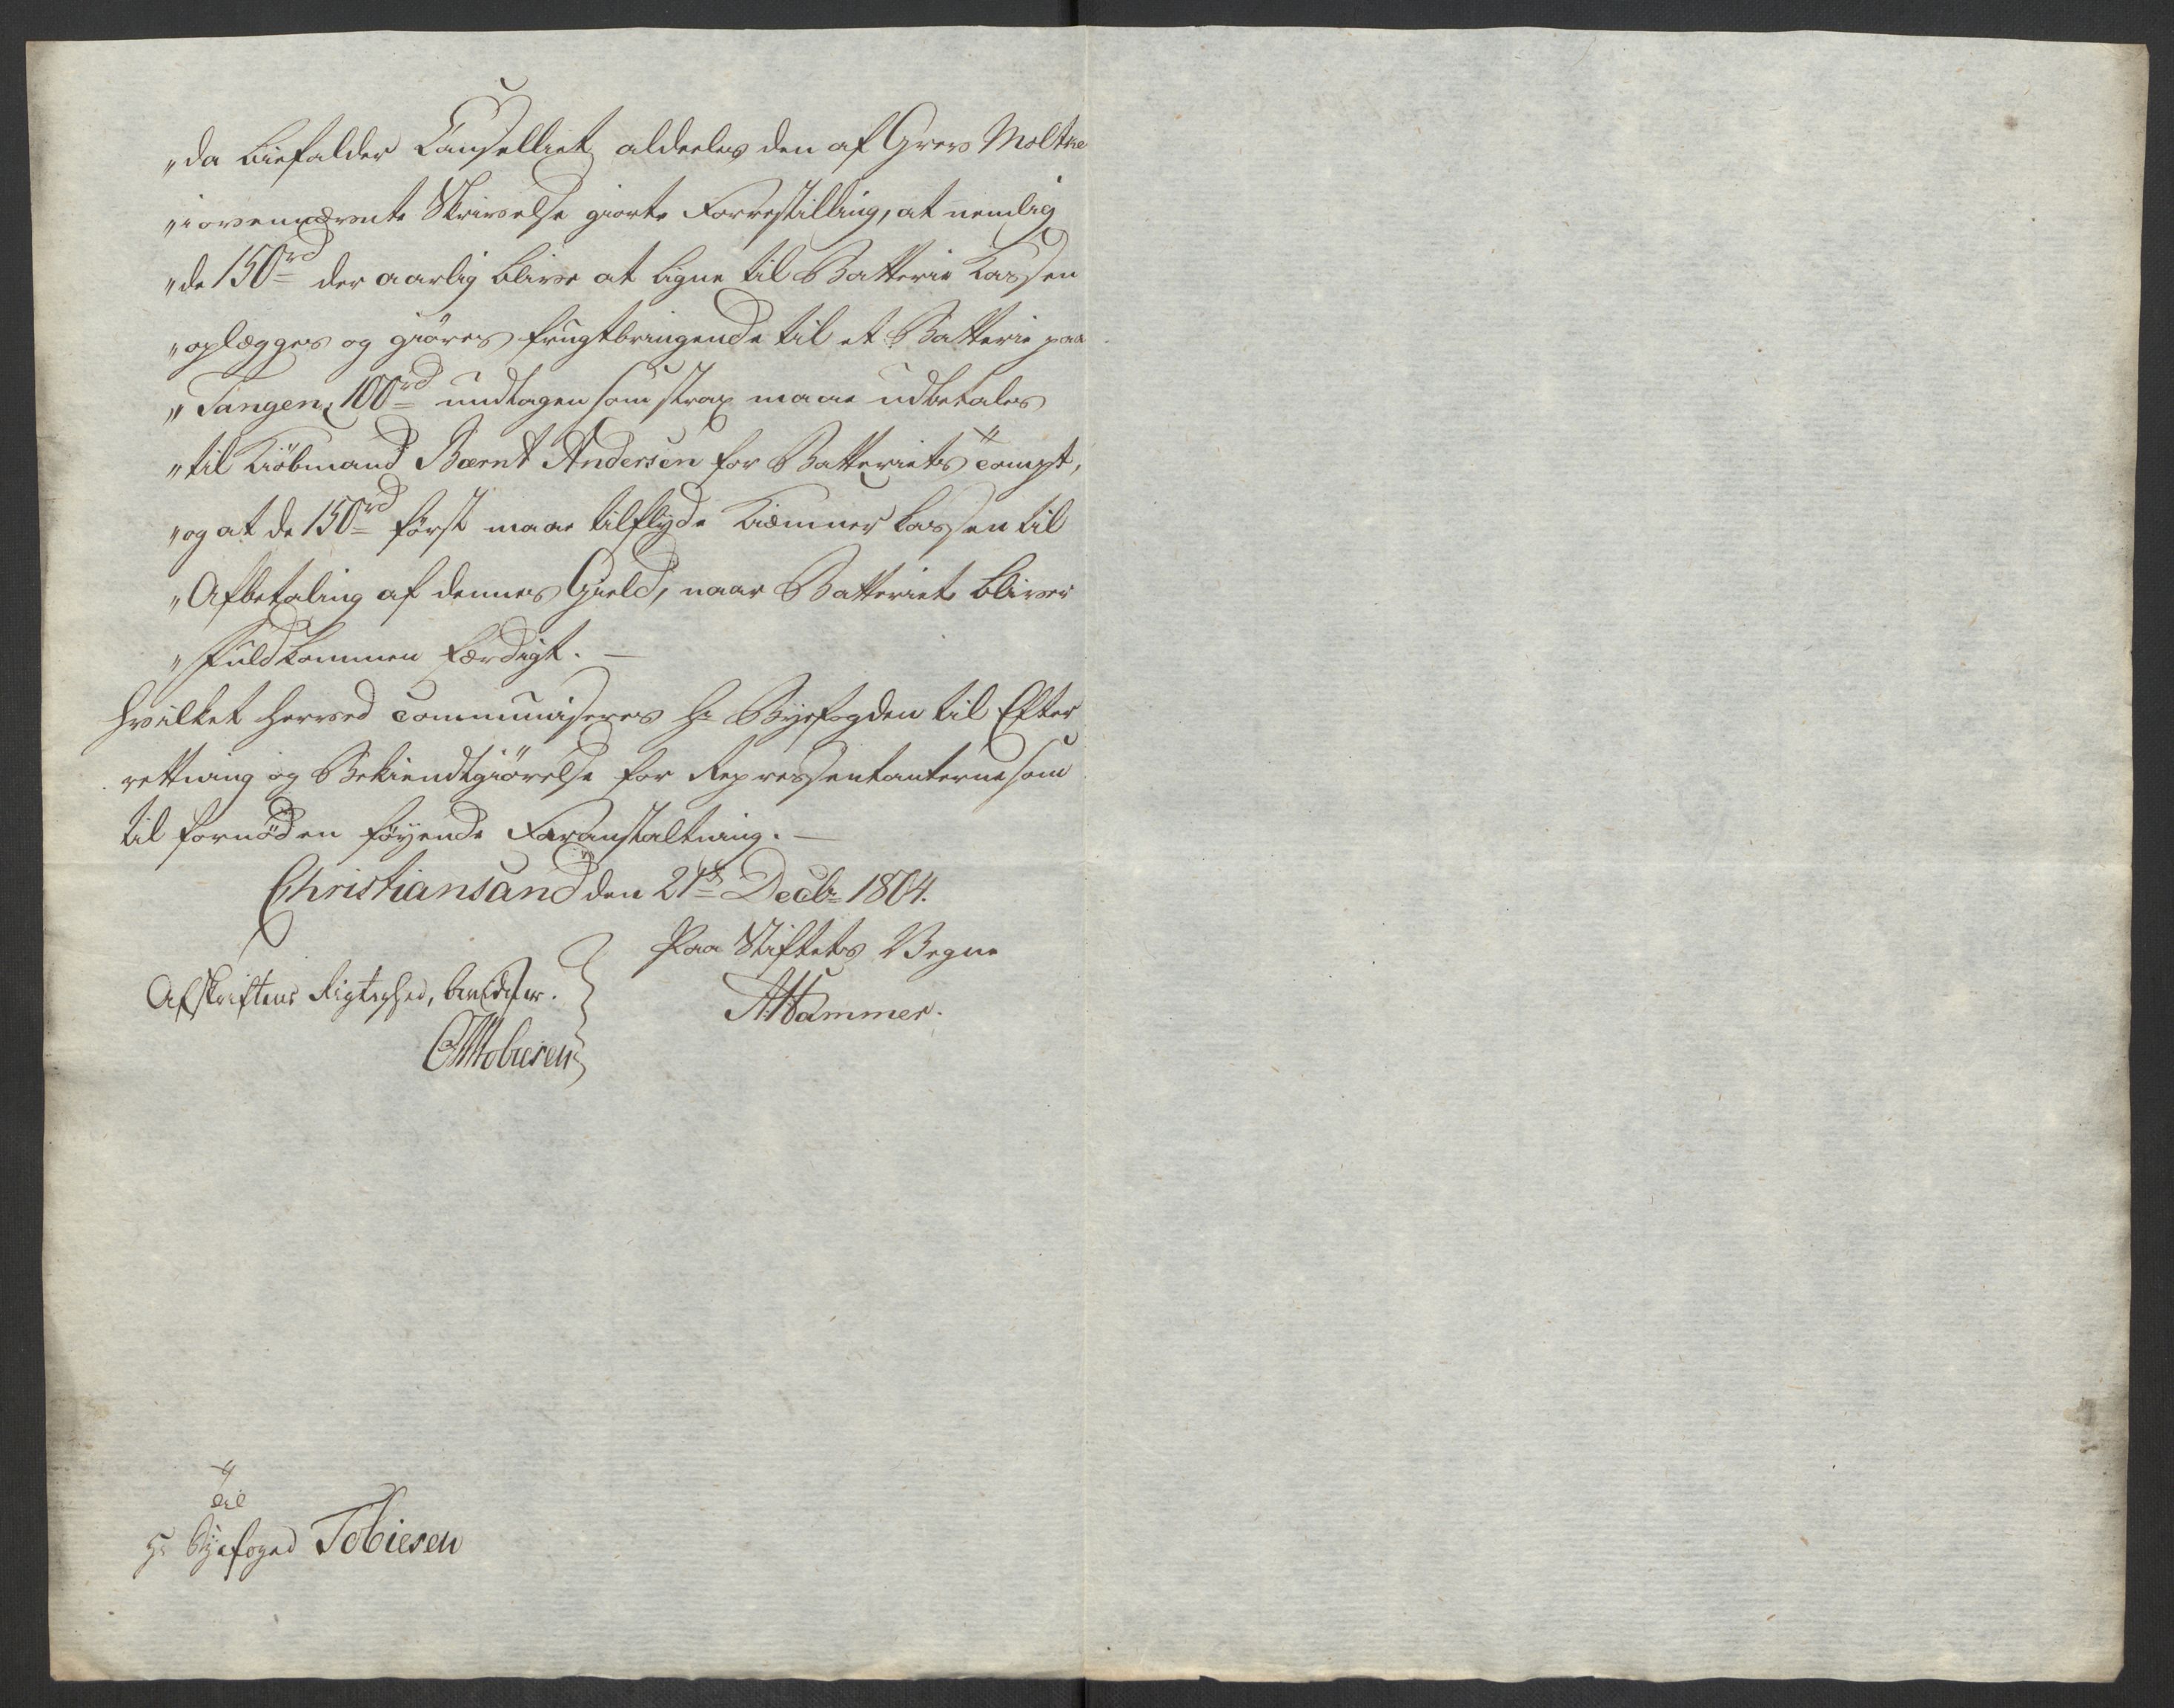 „da biefalder Cancelliet aldeeles den af Grev Moltke
„i ovennævnte Skrivelse giorte Forrestilling, at nemlig
„de 150rd der aarlig blive at ligne til Batterie Cassen
„oplægges og giøres frugtbringende til et Batterie paa
„Tangen, 100rd undtagen som strax maae udbetales
„til Kiöbmand Bærnt Andersen for Batteriets compt,
„og at de 150rd först maae tilflyde Kiæmner Cassen til
„Afbetaling af dennes Gield, naar Batteriet bliver
„fuldkommen færdigt. —
hvilket herved communiceres Hr Byefogden til Efter
rettning og Bekiendtgiörelse for Repressentanterne som
til fornöden föyende Foranstaltning. —
Christiansand den 21de Decbr 1804.
Paa Stiftets Vegne
Hammer.
Afskriftens Rigtighed, bevidner.
Tobiesen
Til
Hr Byefoged Tobiesen